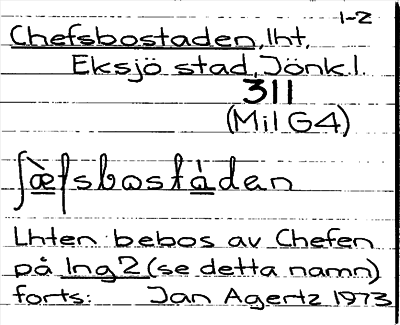 1-2
Chefsbostaden, lht,
Eksjö stad, Jönk.l.
311
(Mil G4)
ʃæ̀fsbostàden
Lhten bebos av Chefen
på Ing2 (se detta namn)
forts: Jan Agertz 1973